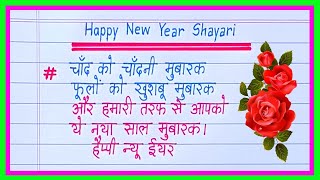 Happy New Year Shayari
# चाँद को चाँदनी मुबारक
फूलों को खुशबू मुबारक
और हमारी तरफ से आपको
ये नया साल मुबारक।
हैप्पी न्यू ईयर